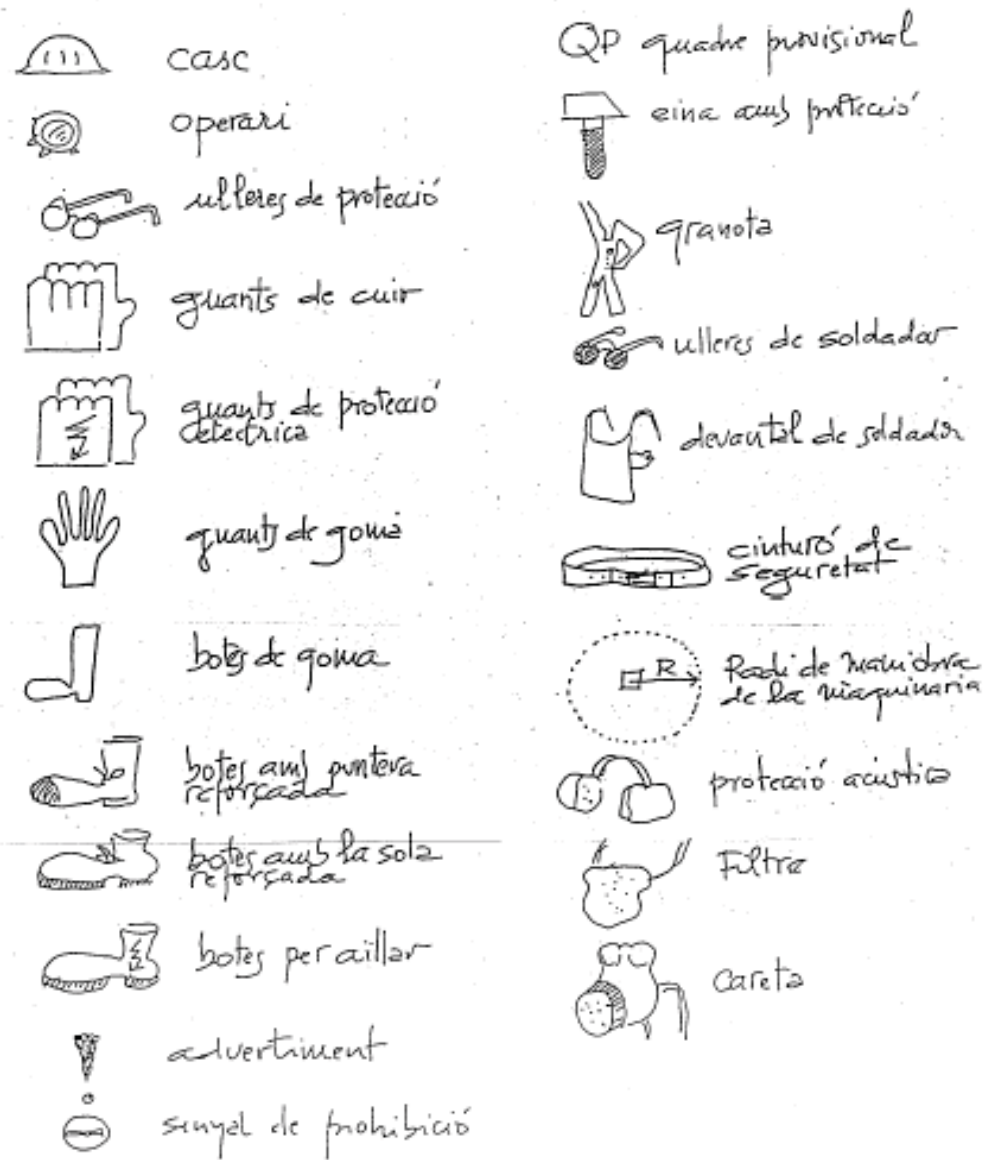 casc
operari
ulleres de protecció
guants de cuir
guants de protecció
electrica
guants de goma
botes de goma
botes amb puntera
reforçada
botes amb la sola
reforçada
botes per aillar
advertiment
senyal de prohibició
QP quadre provisional
eina amb protecció
granota
ulleres de soldador
devantal de soldador
cinturó de
seguretat
R
Radi de maniobra
de la maquinaria
protecció acustica
Filtre
careta